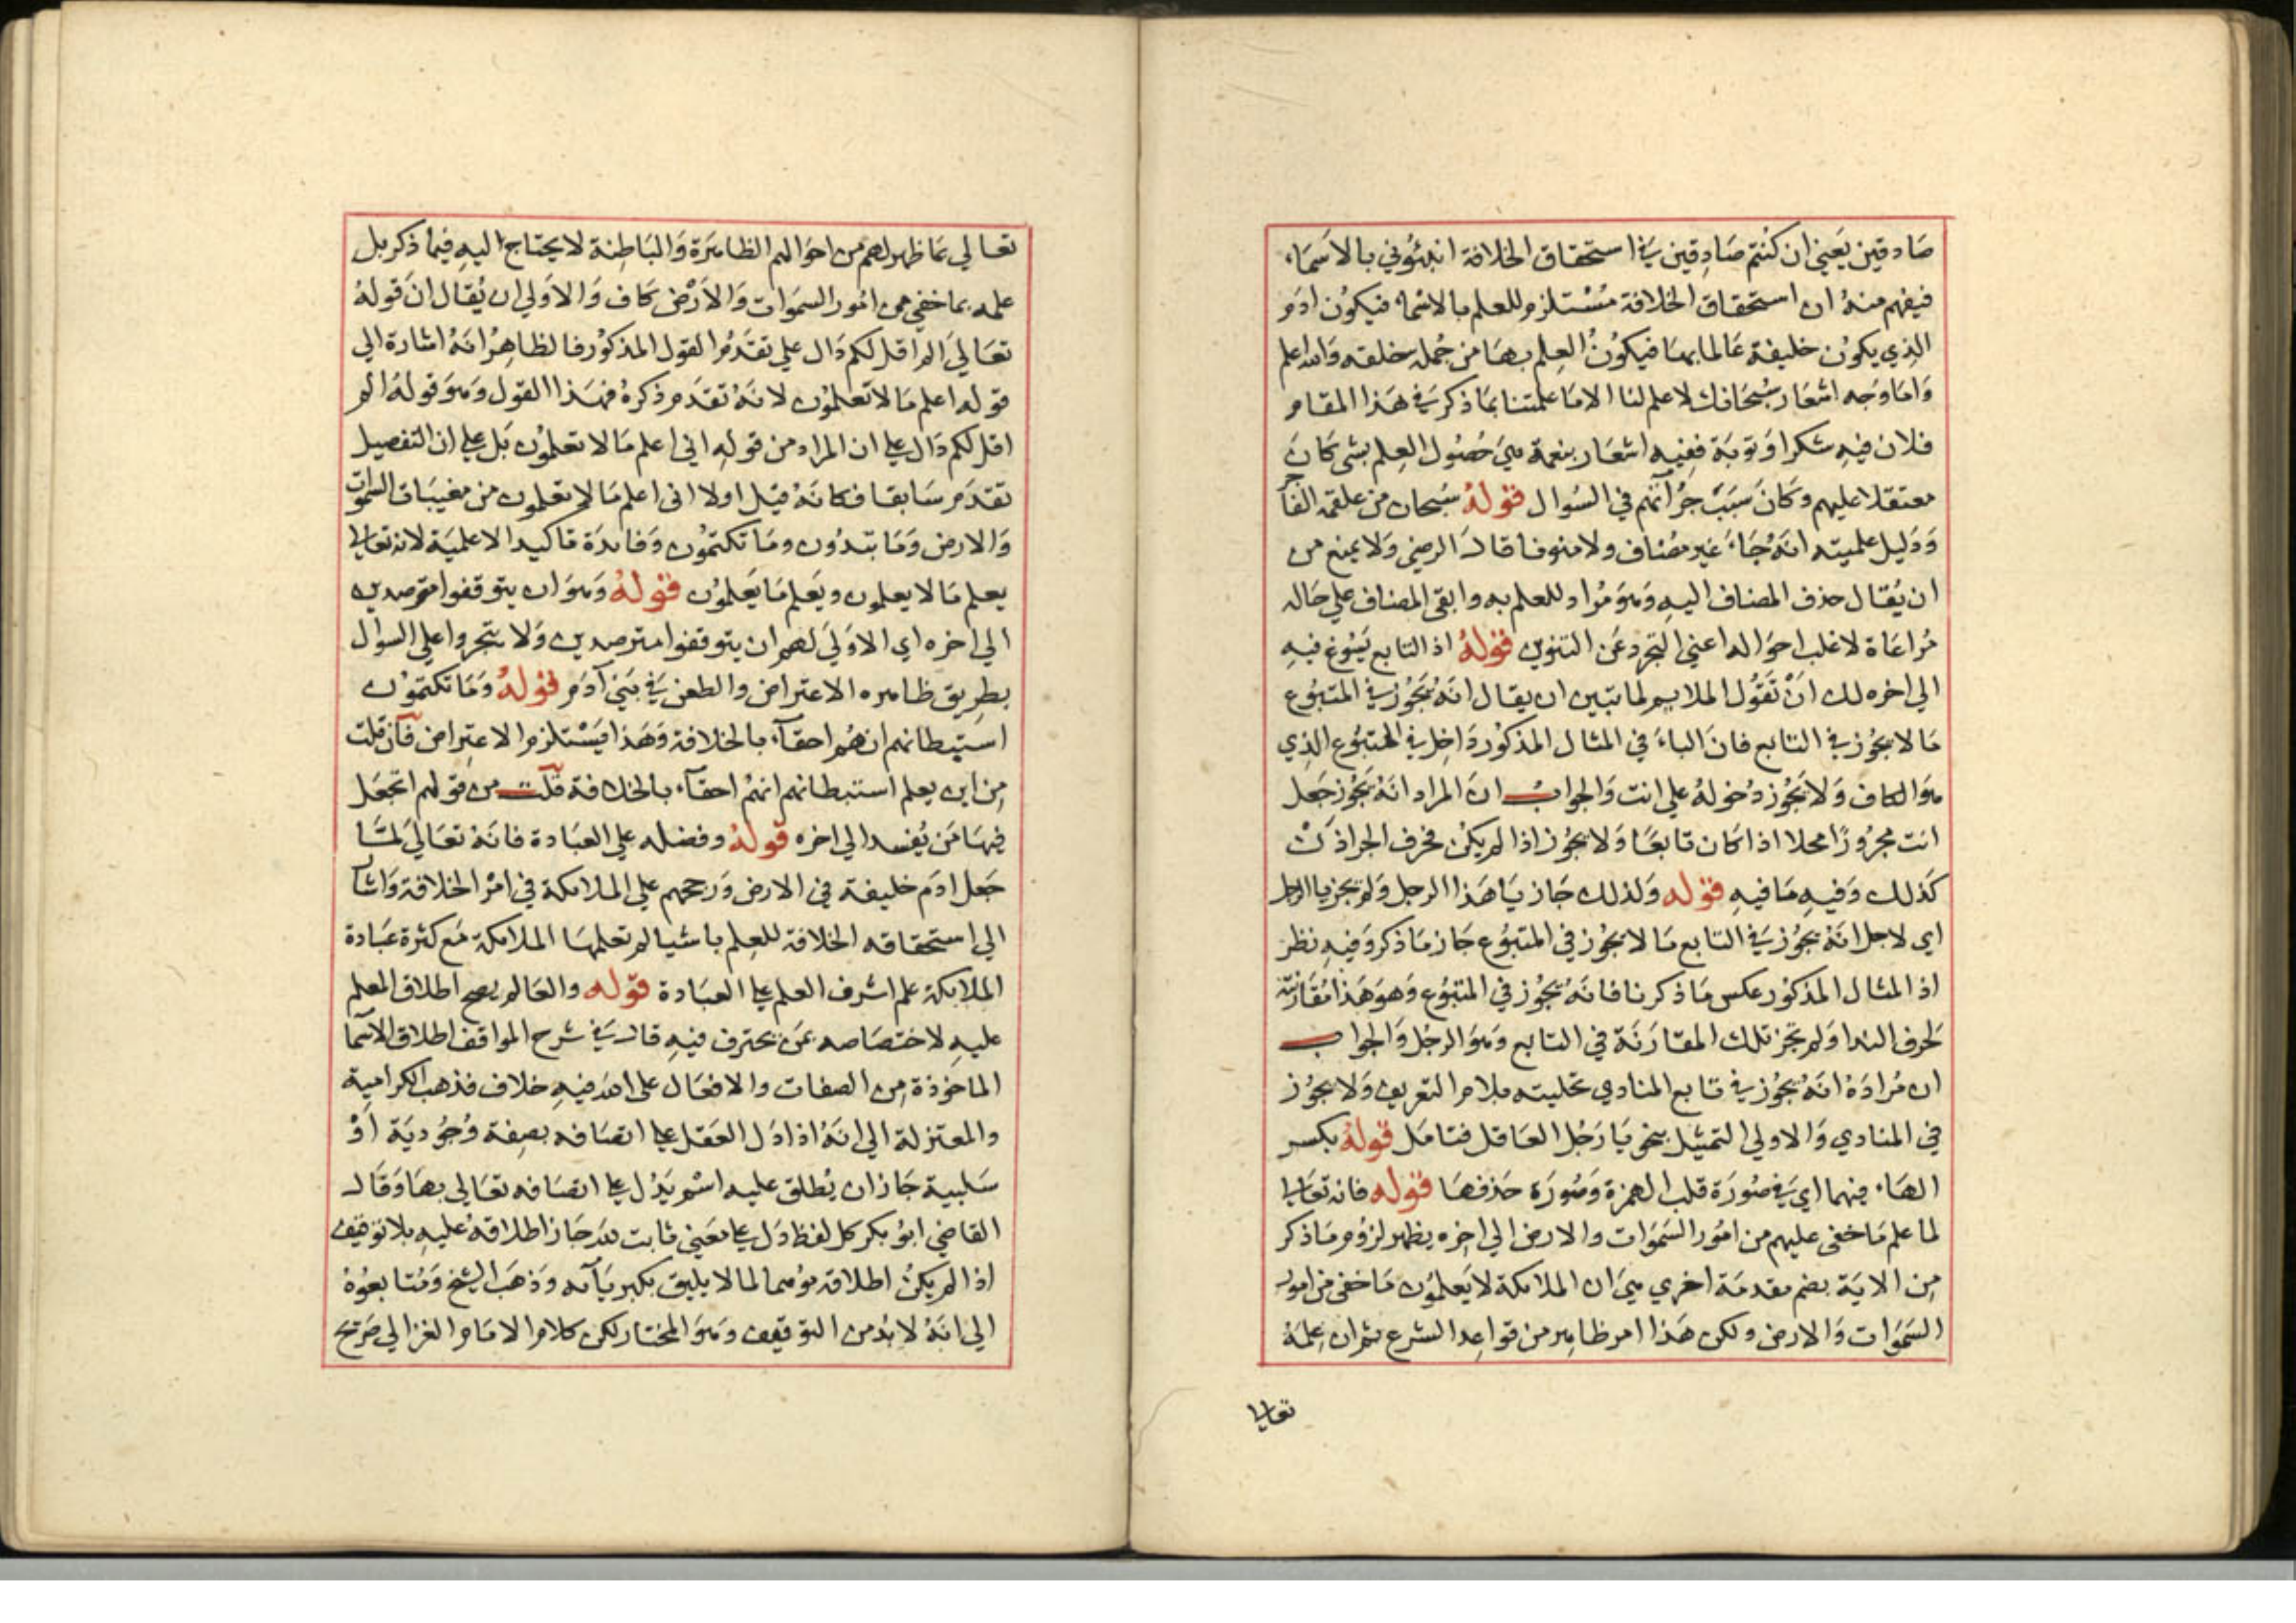 صادقين يعني ان كنتم صادقين في استحقاق الخلافة انبئوني بالاسماء
فيفهم منه ان استحقاق الخلافة مستلزم للعلم بالاسماء فيكون ادم
الذي يكون خليفة عالما بها فيكون العلم بها من جملة خلقه والله اعلم
واما وجه اشعار سبحانك لا علم لنا الا ما علمتنا بما ذكر في هذا المقام
فلان فيه شكرا وتوبة ففيه اشعار بنعمة هي حصول العلم بشي كان
معتقلا عليهم وكان سبب جرأتهم في السوال قوله سبحان من علقمة الفاخر
ودليل علميته انه جاء غير مضاف ولا منونا قال الرضي ولا يمنع من
ان يقال حذف المضاف اليه وهو مراد للعلم به وابقي المضاف علي حاله
مراعاة لاغلب احواله اعني التجرد عن التنوين قوله اذ التابع يسوغ فيه
الي اخره لك ان تقول الملايم لما تبين ان يقال انه يجوز في المتبوع
ما لا يجوز في التابع فان الباء في المثال المذكور داخل في المتبوع الذي
هو الكاف ولا يجوز دخوله علي انت والجواب ان المراد انه يجوز جعل
انت مجرورا محلا اذا كان تابعا ولا يجوز اذا لم يكن بحرف الجر اذ كن
كذلك وفيه ما فيه قوله ولذلك جاز يا هذا الرجل ولم يجز يا الرجل
اي لاجل انه يجوز في التابع ما لا يجوز في المتبوع جاز ما ذكر وفيه نظر
اذ المثال المذكور عكس ما ذكرنا فانه يجوز في المتبوع وهو هذا مقارنته
لحرف الندا ولم تجز تلك المقارنة في التابع وهو الرجل والجواب
ان مراده انه يجوز في تابع المنادي تحليته بلام التعريف ولا يجوز
في المنادي والاولي التمثيل بنحو يا رجل العاقل فتامل قوله بكسر
الهاء فيهما اي في صورة قلب الهمزة وصورة حذفها قوله فانه تعالي
لما علم ما خفي عليهم من امور السموات والارض الي اخره يظهر لزوم ما ذكر
من الاية بضم مقدمة اخري هي ان الملائكة لا يعلمون ما خفي من امور
السموات والارض ولكن هذا امر ظاهر من قواعد الشرع ثم ان علمه
تعالي
تعالي بما ظهر لهم من احوالهم الظاهرة والباطنة لا يحتاج اليه فيما ذكر بل
علمه بما خفي من امور السموات والارض كاف والاولي ان يقال ان قوله
تعالي الم اقل لكم دال علي تقدم القول المذكور فالظاهر انه اشارة الي
قوله اعلم ما لا تعلمون لانه تقدم ذكره فهذا القول وهو قوله الم
اقل لكم دال علي ان المراد من قوله اني اعلم ما لا تعلمون بل علي ان التفصيل
تقدم سابقا فكانه قيل اولا اني اعلم ما لا تعلمون من مغيبات السموات
والارض وما تبدون وما تكتمون وفائدة تاكيد الاعلمية لانه تعالي
يعلم ما لا يعلمون ويعلم ما يعلمون قوله وهو ان يتوقفوا مترصدين
الي اخره اي الاولي لهم ان يتوقفوا مترصدين ولا يتجروا علي السوال
بطريق ظاهره الاعتراض والطعن في بني آدم قوله وما تكتمون
استبطانهم انهم احقآء بالخلافة وهذا يستلزم الاعتراض فان قلت
من اين يعلم استبطانهم انهم احقآء بالخلافة قلت من قولهم اتجعل
فيها من يفسد الي اخره قوله وفضله علي العبادة فانه تعالي لما
جعل ادم خليفة في الارض ورجحهم علي الملائكة في امر الخلافة واشار
الي استحقاقه الخلافة للعلم باشيا لم تعلمها الملائكة مع كثرة عبادة
الملائكة علم اشرف العلم علي العبادة قوله والعالم يصح اطلاق المعلم
عليه لاختصاصه بمن يحترف فيه قال في شرح المواقف اطلاق الاسما
الماخوذة من الصفات والافعال علي الله فيه خلاف فذهب الكرامية
والمعتزلة الي انه اذا دل العقل علي اتصافه بصفة وجودية او
سلبية جاز ان يطلق عليه اسم يدل علي اتصافه تعالي بها وقال
القاضي ابو بكر كل لفظ دل علي معني ثابت لله جاز اطلاقه عليه بلا توقيف
اذا لم يكن اطلاقه موهما لما لا يليق بكبريآئه وذهب الشيخ ومتابعوه
الي انه لا بد من التوقيف وهو المختار لكن كلام الامام الغزالي صريح